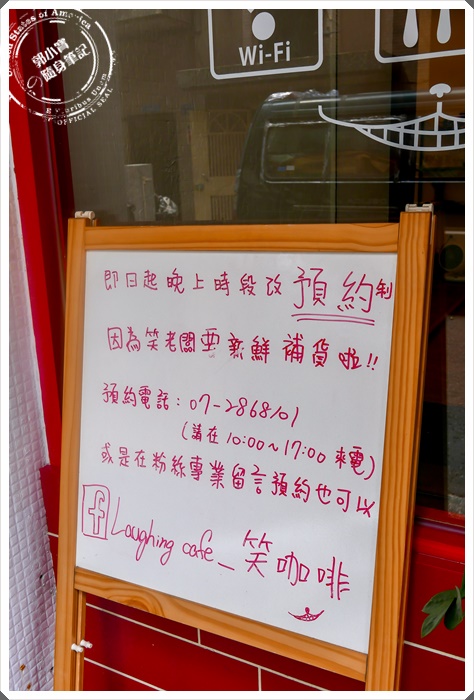 United States of America
郭小寶
の隨身筆記
E Pluribus Unum
OFFICIAL SEAL
Wi-Fi
即日起晚上時段改預約制
因為笑老闆要新鮮補貨啦!!
預約電話：07-2868101
(請在10:00~17:00來電)
或是在粉絲專業留言預約也可以
f Laughing cafe_笑咖啡